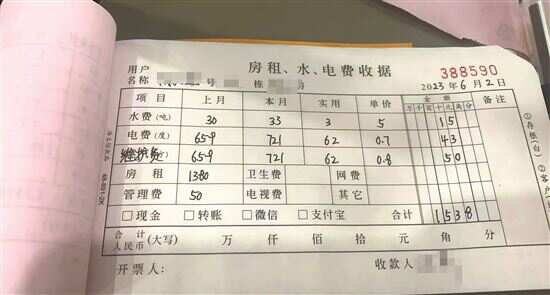 房租、水、电费收据
388590
用户
名称 号 栋 房
2023年6月2日
项目 上月 本月 实用 单价 金额 备注
万 千 百 十 元 角 分
水费(吨) 30 33 3 5 15
电费(度) 659 721 62 0.7 43
659 721 62 0.8 50
房租 1380 卫生费 网费
管理费 50 电视费 其它
□现金 □转账 □微信 □支付宝 合计 1538
合计
人民币(大写) 万 仟 佰 拾 元 角 分
开票人: 收款人
①存根(白)
②客户